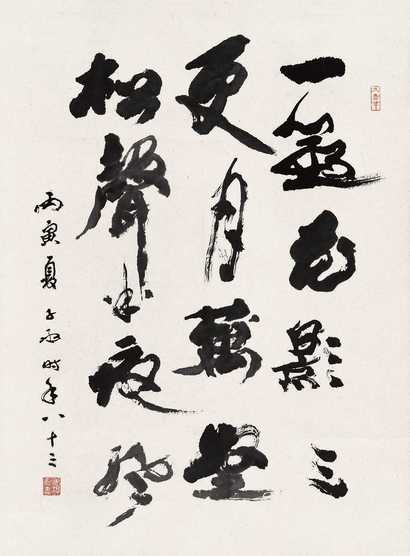 一花影三
更月萬壑
松聲半夜風
丙寅夏子丞時年八十三